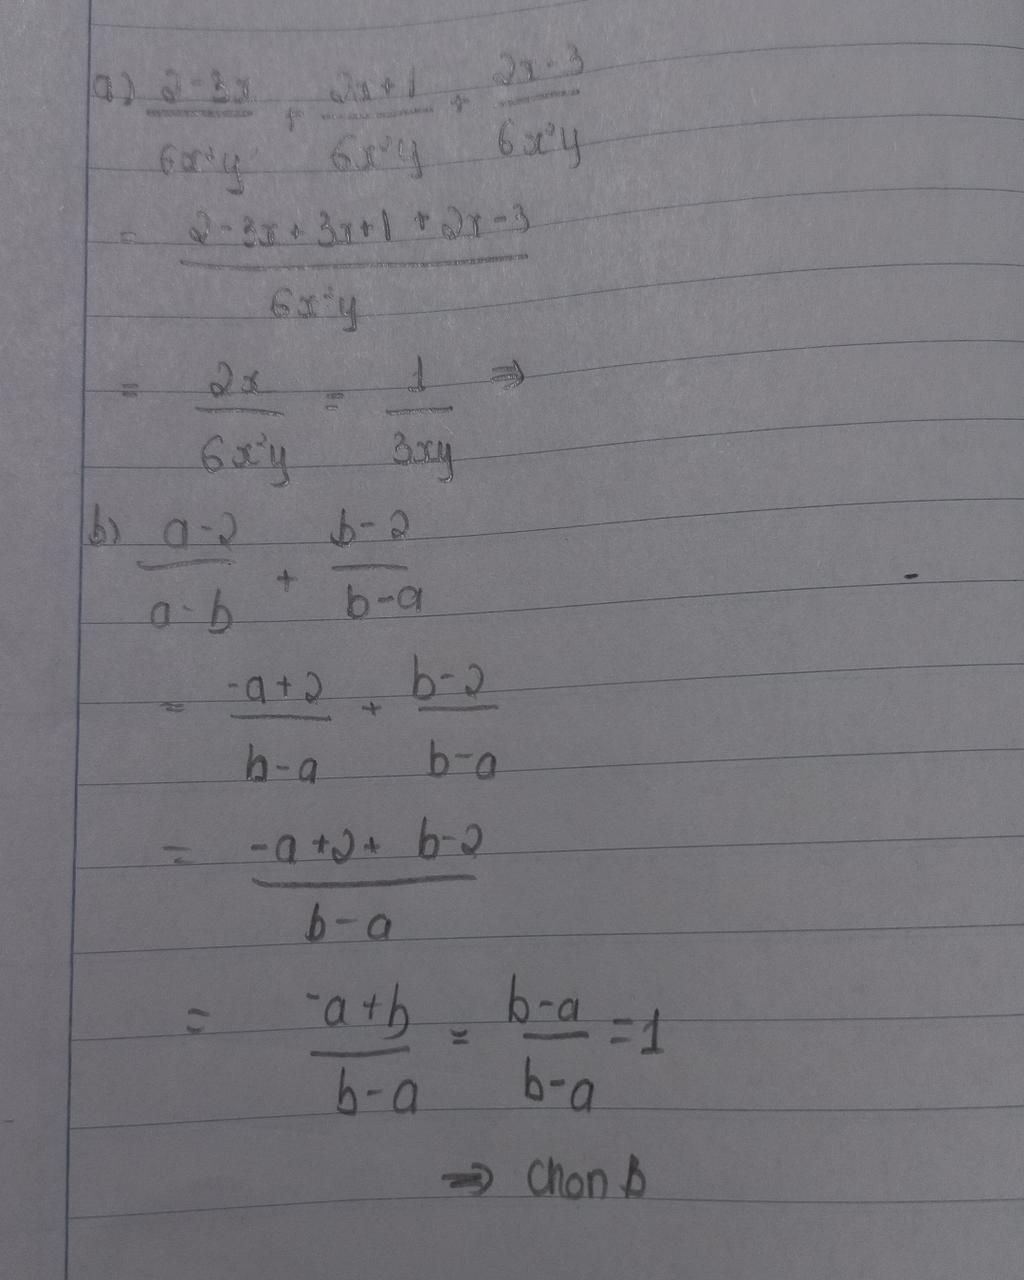 a) (2-3x)/(6x²y) + (2x+1)/(6x²y) + (2x-3)/(6x²y)
= (2-3x+3x+1+2x-3)/(6x²y)
= 2x/(6x²y) = 1/(3xy) ⇒
b) (a-2)/(a-b) + (b-2)/(b-a)
= (-a+2)/(b-a) + (b-2)/(b-a)
= (-a+2+b-2)/(b-a)
= (-a+b)/(b-a) = (b-a)/(b-a) = 1
⇒ chon b